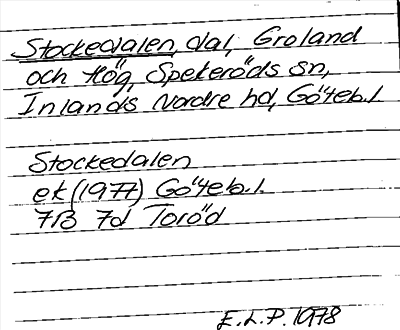 Stockedalen, dal, Groland
och Hög, Spekeröds sn,
Inlands Nordre hd, Göteb.l.
Stockedalen
ek (1977) Göteb.l.
7B 7d Toröd
E.L.P. 1978